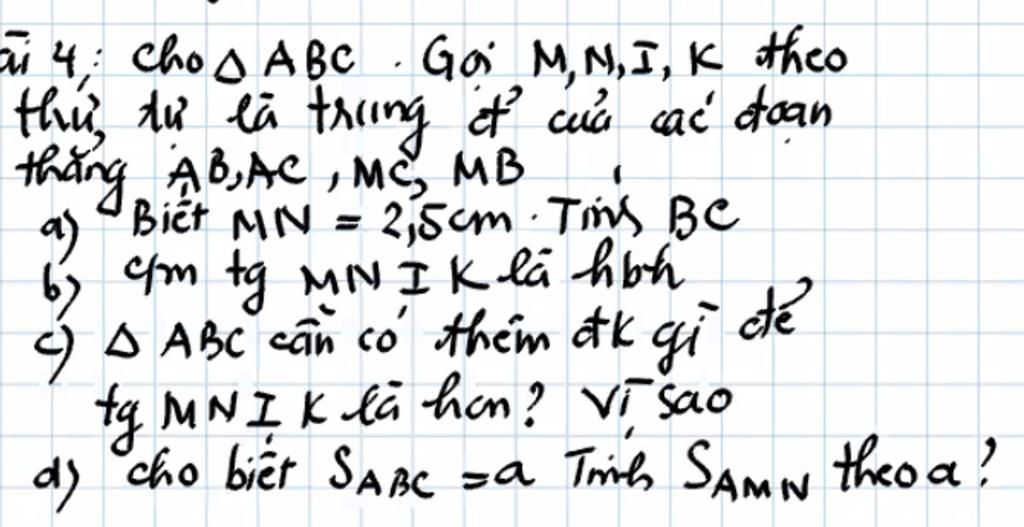 ài 4: Cho △ ABC. Gọi M, N, I, K theo
thứ tự là trung đ' của các đoạn
thẳng AB, AC, MC, MB
a) Biết MN = 2,5cm. Tính BC
b) c/m tg MNIK là hbh
c) △ ABC cần có thêm đk gì để
tg MNIK là hcn? Vì sao
d) cho biết S_ABC = a Tính S_AMN theo a?